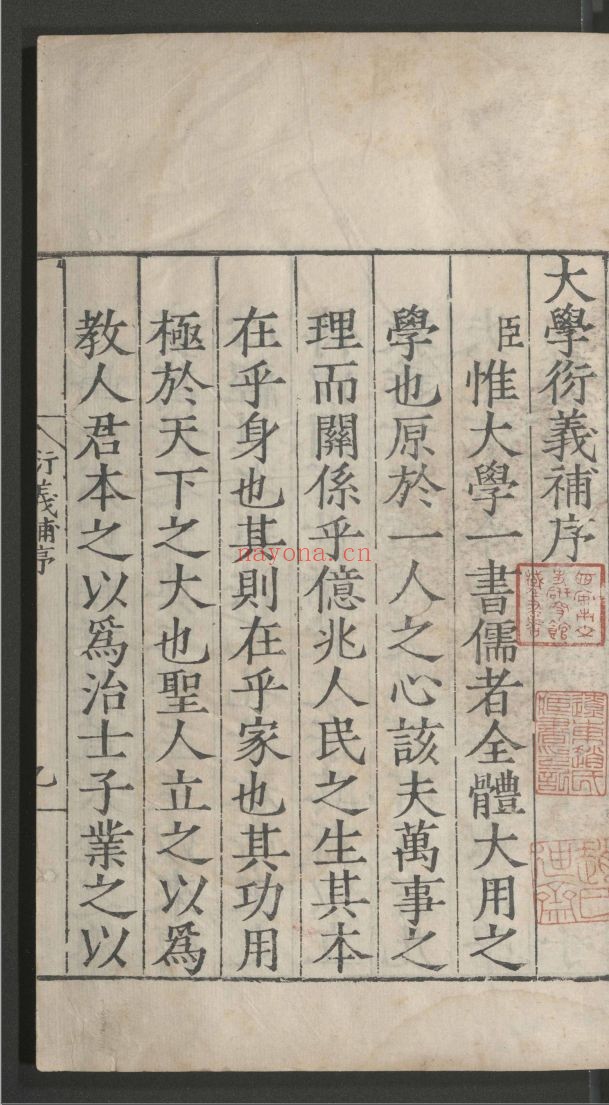 大學衍義補序
臣惟大學一書儒者全體大用之
學也原於一人之心該夫萬事之
理而關係乎億兆人民之生其本
在乎身也其則在乎家也其功用
極於天下之大也聖人立之以爲
教人君本之以爲治士子業之以
衍義補序
nayona.cn